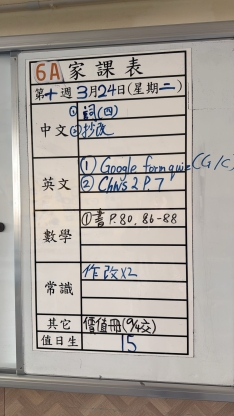 6A 家課表
第十週3月24日(星期二)
中文
① 詞(四)
② 抄改
英文
① Google form quiz (G/C)
② Chns 2 P.7
數學
① 書 P.80, 86-88
常識
作改x2
其它
價值冊(9/4交)
值日生
15